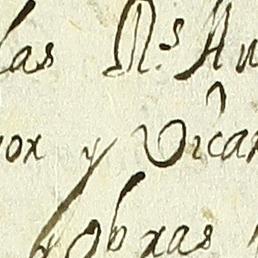 las N.s Au
or y Vicar
y obras